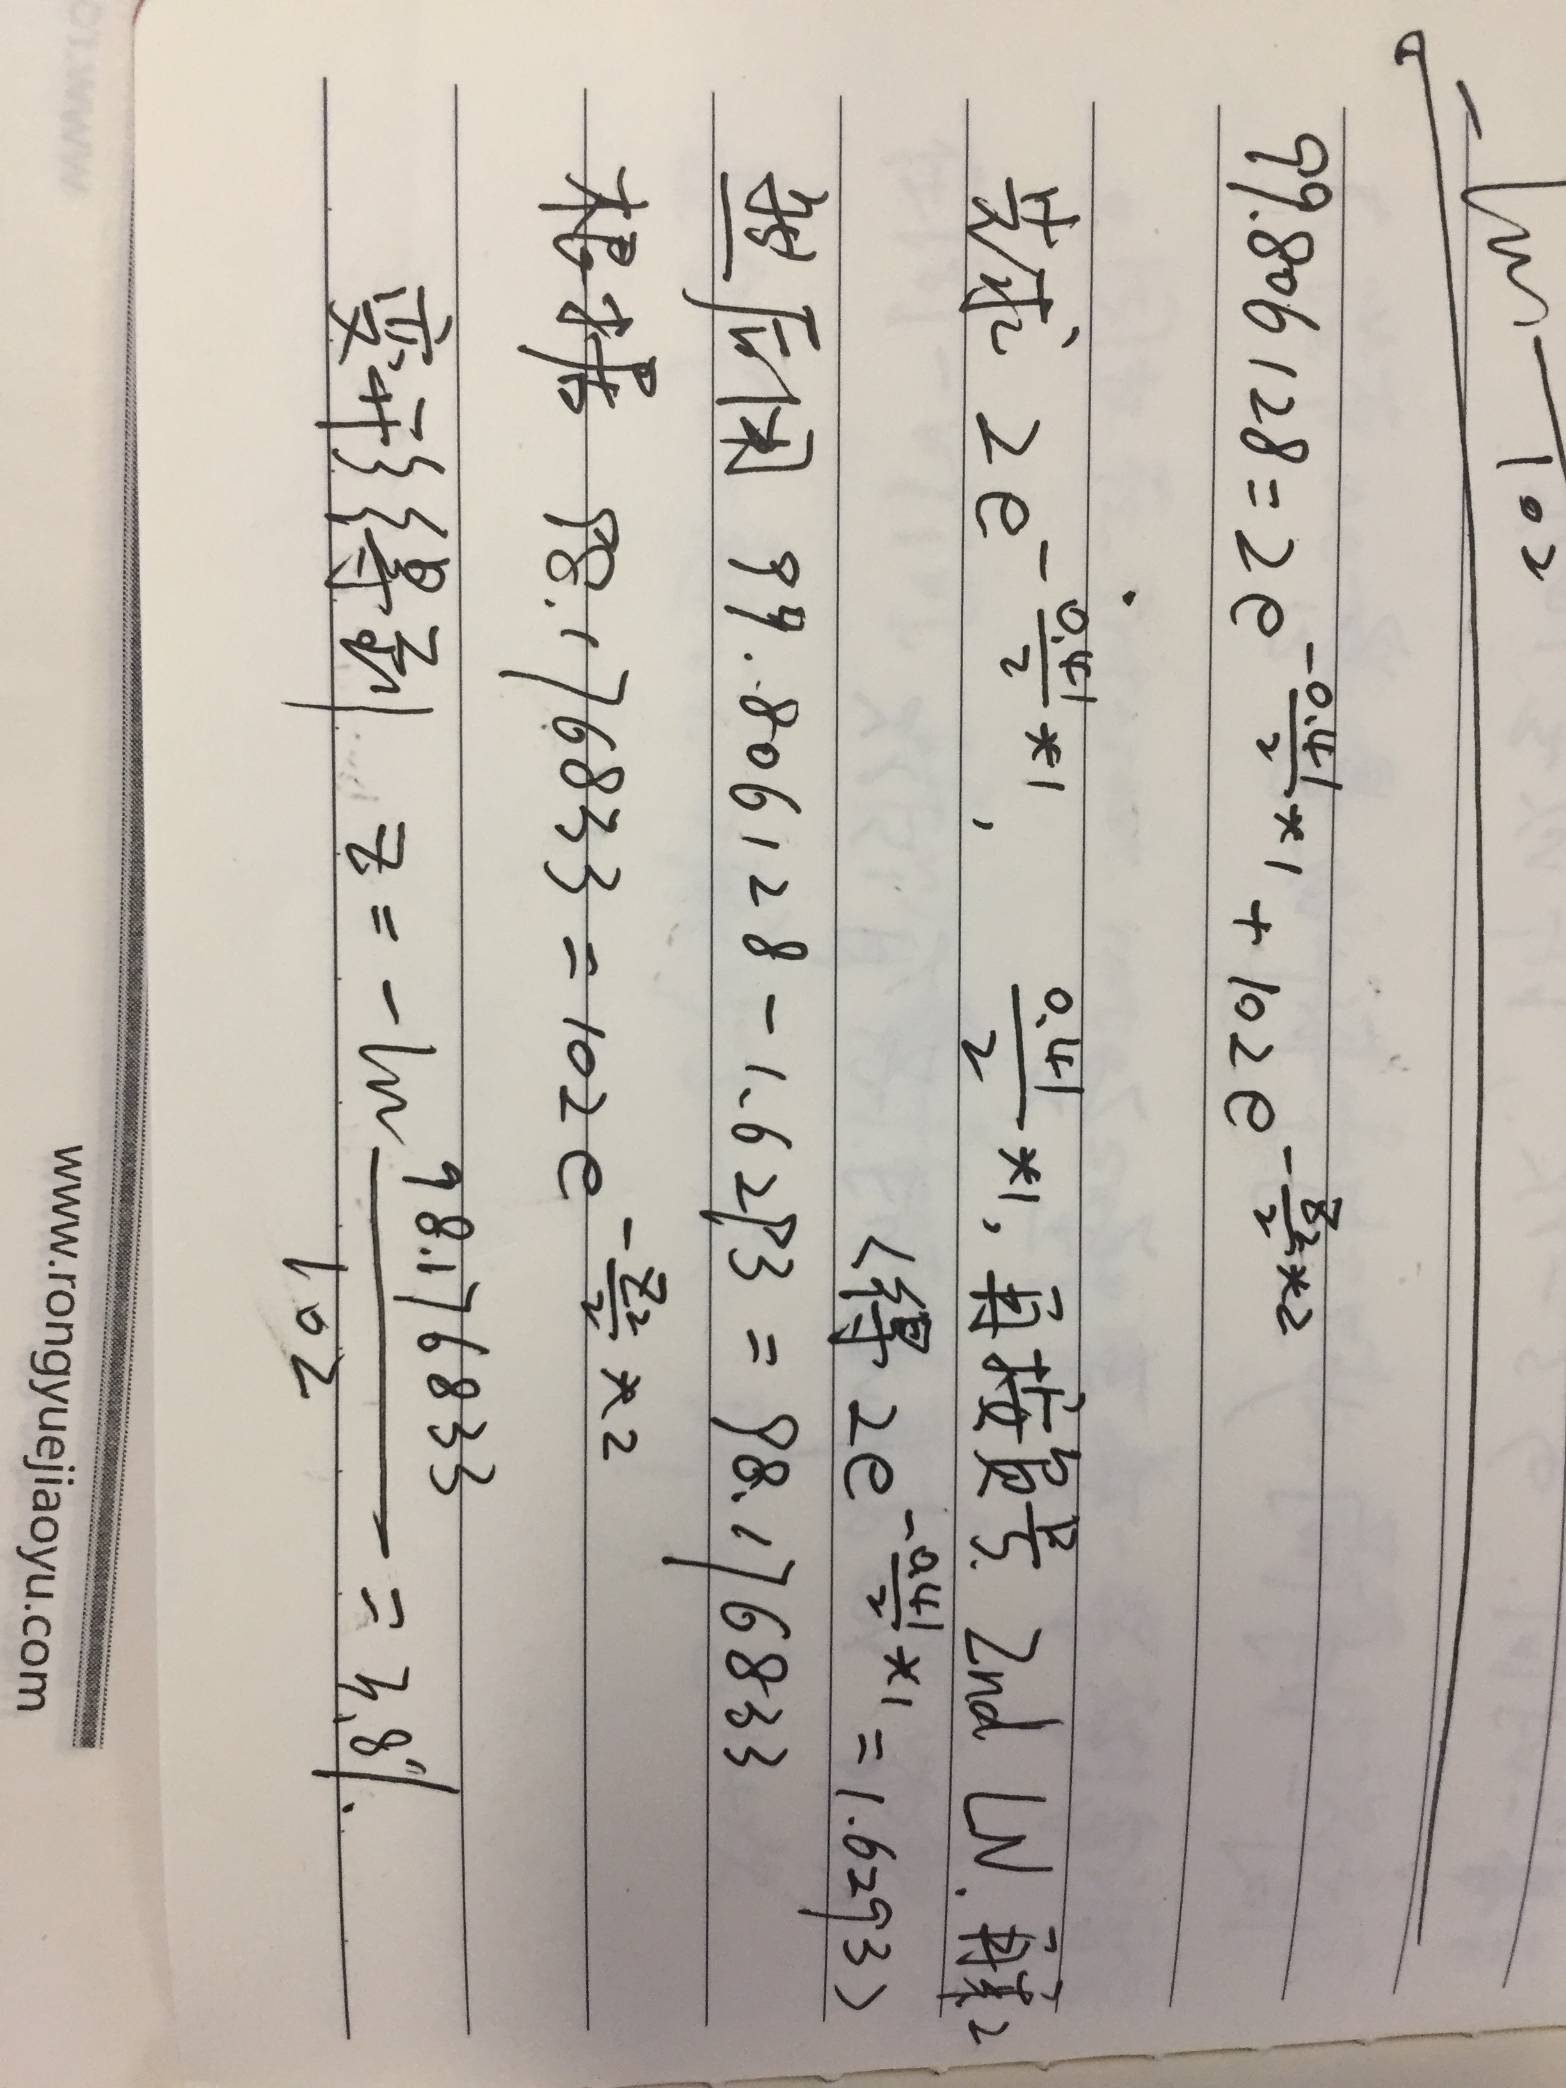 -ln 102
99.806128=2e^{-\frac{0.41}{2}*1}+102e^{-\frac{z_2}{2}*2}
先求 2e^{-\frac{0.41}{2}*1}, \frac{0.41}{2}*1, 再按负号. 2nd LN. 再乘2
<得 2e^{-\frac{0.41}{2}*1}=1.6293>
然后用 99.806128-1.6293=98.176833
根据 98.176833=102e^{-\frac{z_2}{2}*2}
变形得到 z=-ln\frac{98.176833}{102}=3.8%.
www.rongyuejiaoyu.com
www.ro